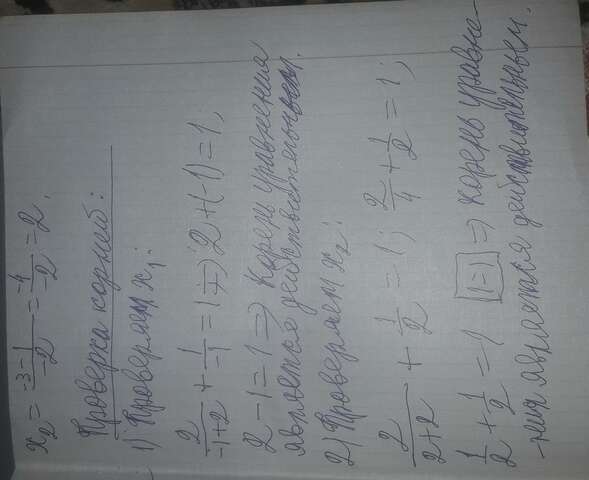 x₂ = -3-1/-2 = -4/-2 = 2.
Проверка корней:
1) Проверяем x₁:
2/-1+2 + 1/-1 = 1; => 2+(-1) = 1;
2-1=1 => Корень уравнения
является действительным.
2) Проверяем x₂:
2/2+2 + 1/2 = 1; 2/4 + 1/2 = 1;
1/2 + 1/2 = 1 1=1 => корень уравне-
-ния является действительным.